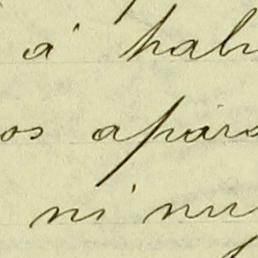 á hab
os apara
ni nu